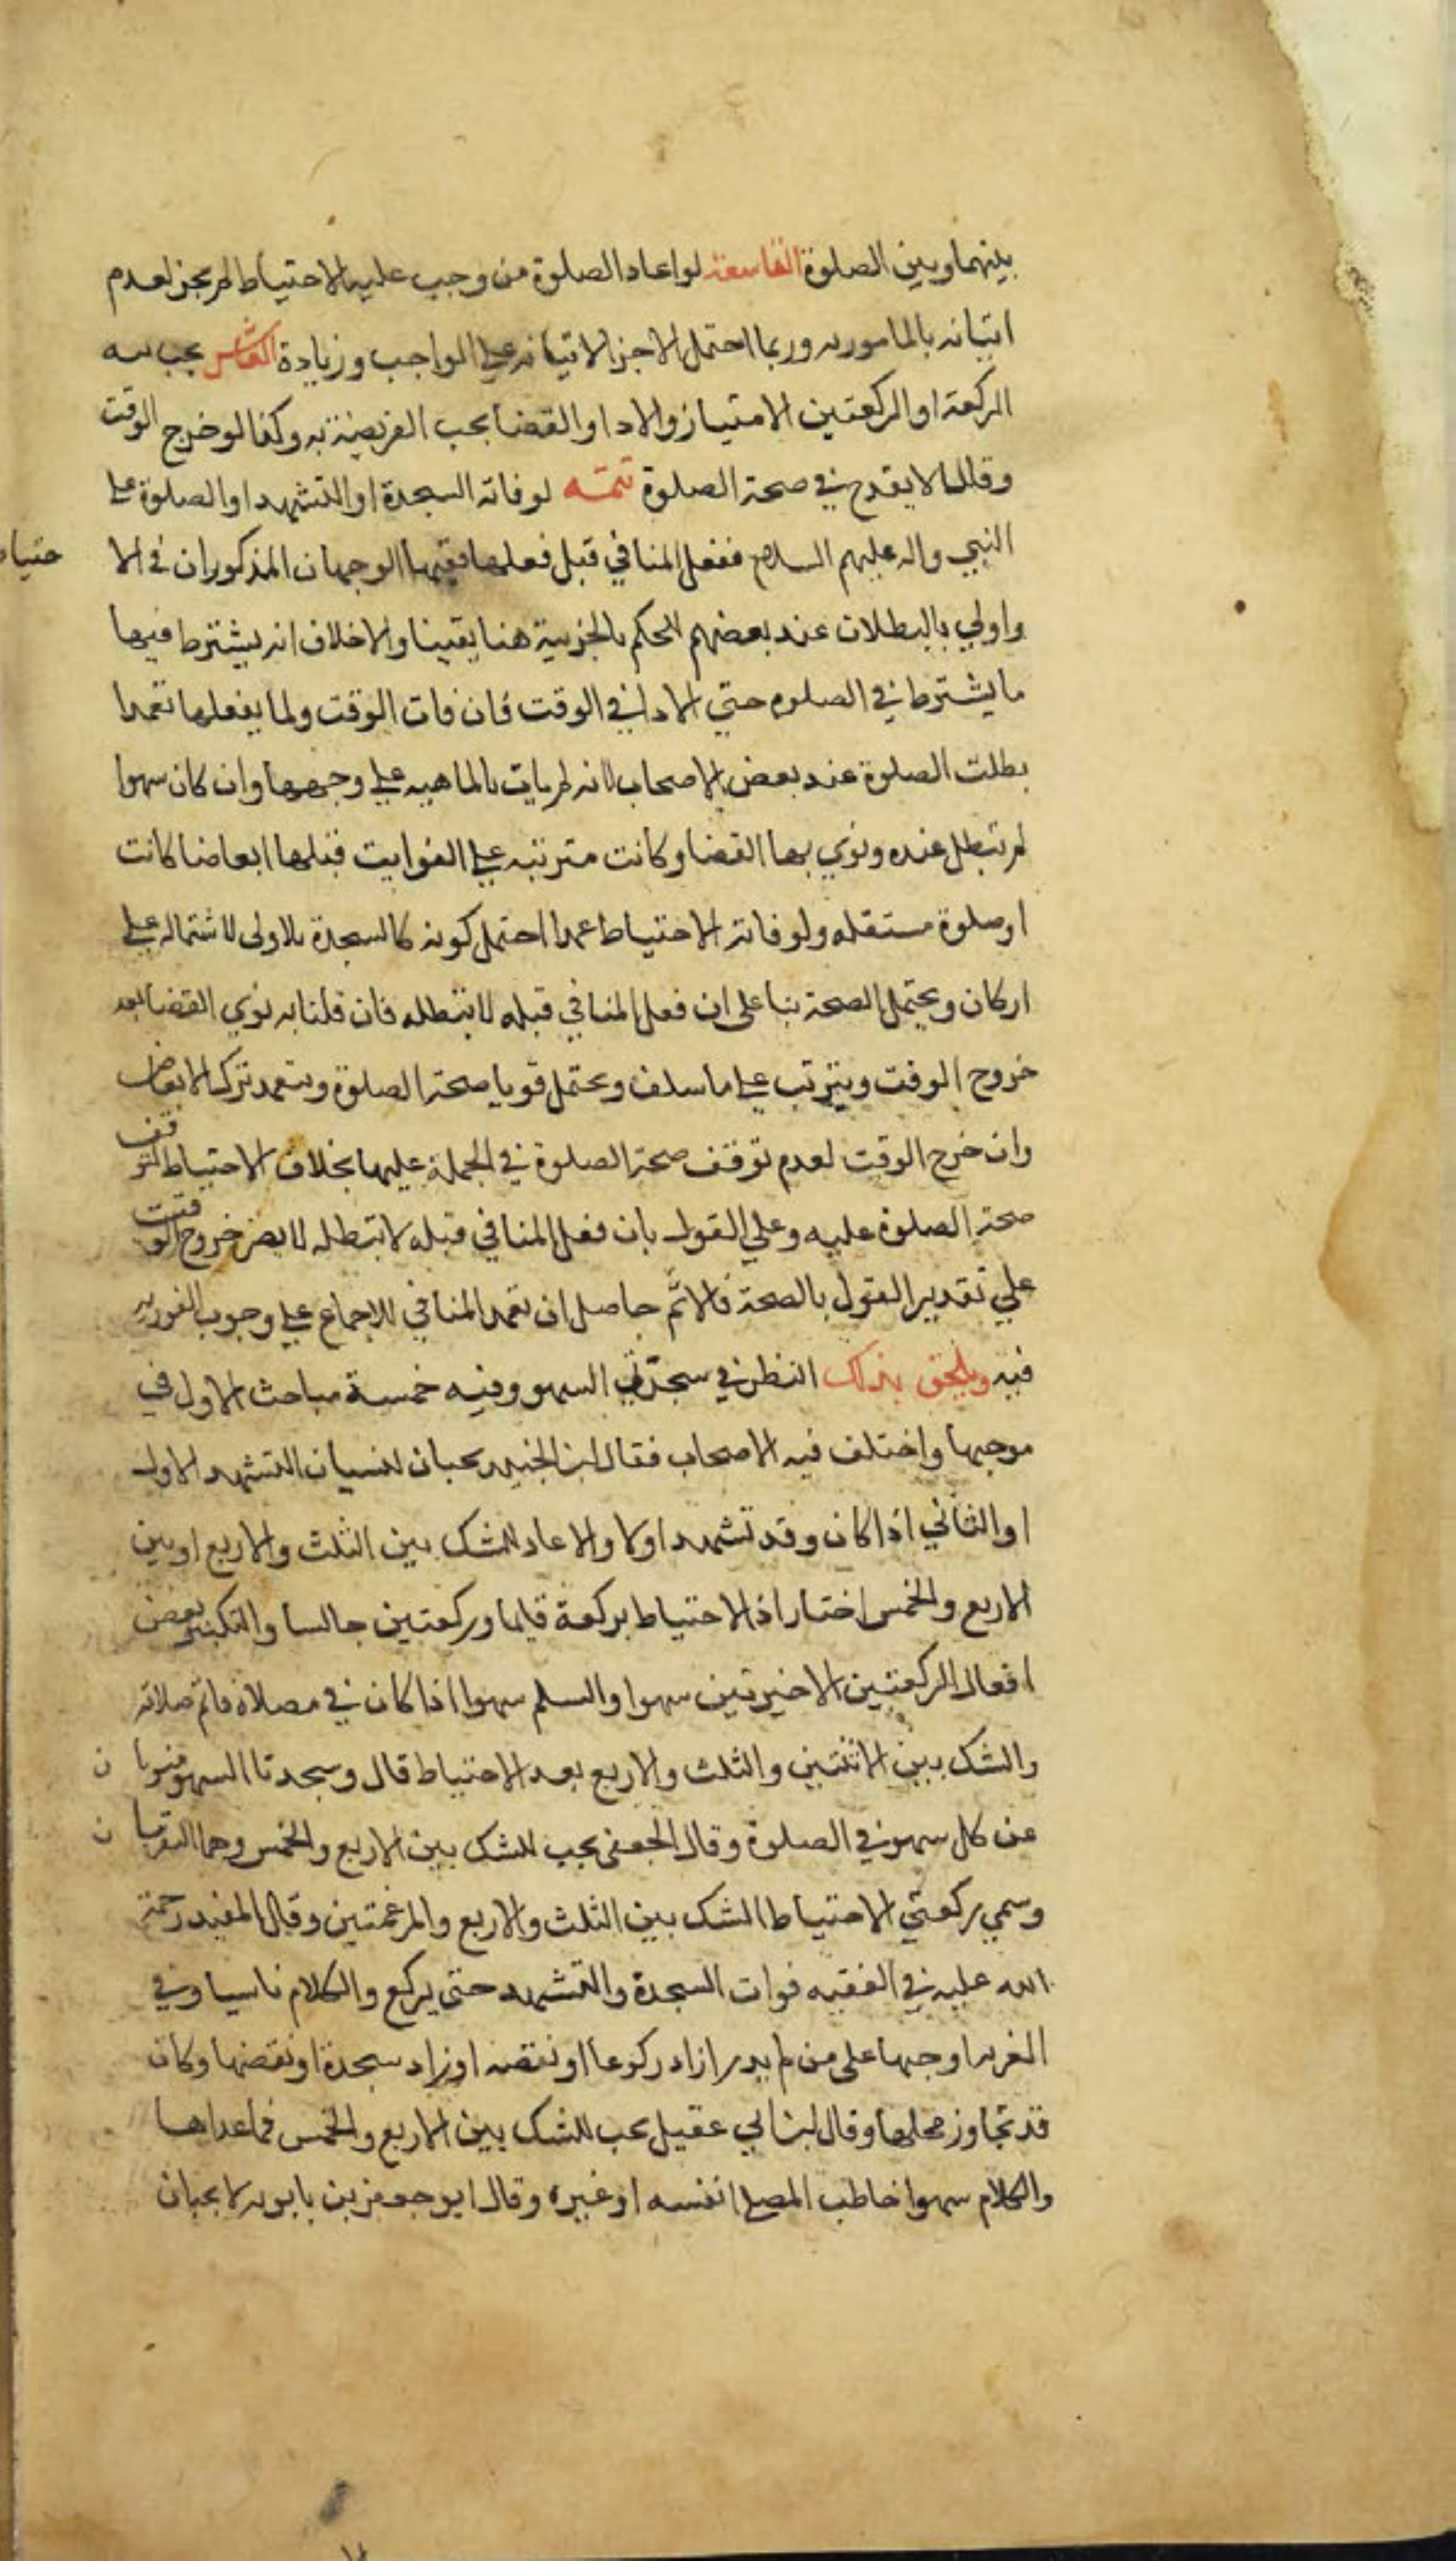 بينهما وبين الصلوة التاسعة لو اعاد الصلوة من وجب عليه الاحتياط لم يجز لعدم
اتيانه بالمامور به وربما احتمل الاجزا لاتيانه على الواجب وزيادة العاشر يجب نيه
الركعة او الركعتين الامتياز والادا والقضا بحب الفريضة به وكذا لو خرج الوقت
وقلنا لا يقدح في صحة الصلوة تتمه لو فاته السجدة او التشهد او الصلوة على
النبي واله عليهم السلام ففعل المنافي قبل فعلها ففيها الوجهان المذكوران في الا حتياط
واولي بالبطلان عند بعضهم للحكم بالجزيية هنا يقينا ولا خلاف انه يشترط فيها
ما يشترط في الصلوه حتي الادا في الوقت فان فات الوقت ولما يفعلها تعمدا
بطلت الصلوة عند بعض الاصحاب لانه لم يات بالماهيه على وجهها وان كان سهوا
لم تبطل عنده ونوي بها القضا وكانت مترتبه على الفوايت قبلها ابعاضا كانت
او صلوة مستقله ولو فاته الاحتياط عمدا احتمل كونه كالسجدة بالاولى لاشتماله على
اركان ويحتمل الصحة بنا على ان فعل المنافي قبله لا يبطله فان قلنا به نوي القضا بعد
خروج الوقت ويترتب على ما سلف ويحتمل قويا صحة الصلوة وبتعمد ترك الابعاض
وان خرج الوقت لعدم توقف صحة الصلوة في الجملة عليها بخلاف الاحتياط لتوقف
صحة الصلوة عليه وعلي القول بان فعل المنافي قبله لا تبطله لا يضر خروج الوقت
علي تقدير القول بالصحة فالاثم حاصل ان تعمد المنافي للاجماع على وجوب الفوريه
فيه ويلحق بذلك النظر في سجدتي السهو وفيه خمسة مباحث الاول في
موجبها واختلف فيه الاصحاب فقال ابن الجنيد يجبان لنسيان التشهد الاول
او الثاني اذا كان وقد تشهد اولا والا عاد للشك بين الثلث والاربع او بين
الاربع والخمس اختار اذ الاحتياط بركعة قايما وركعتين جالسا والتكبير بعض
افعال الركعتين الاخيرتين سهوا والسلم سهوا اذا كان في مصلاه فاتم صلاته
والشك بين الاثنتين والثلث والاربع بعد الاحتياط قال وسجدتا السهو منوبا ن
عن كل سهو في الصلوة وقال الجعفي يجب للشك بين الاربع والخمس وهما النقرتا ن
وسمي ركعتي الاحتياط الشك بين الثلث والاربع والمرغمتين وقال المفيد رحمة
الله عليه في الفقيه فوات السجدة والتشهد حتى يركع والكلام ناسيا وفي
الغريه اوجبها على من لم يدر ازاد ركوعا او نقصه او زاد سجدة او نقصها وكان
قد تجاوز محلها وقال ابن ابي عقيل يجب للشك بين الاربع والخمس فما عداها
والكلام سهوا خاطب المصلي نفسه او غيره وقال ابو جعفر بن بابويه لا يجبان